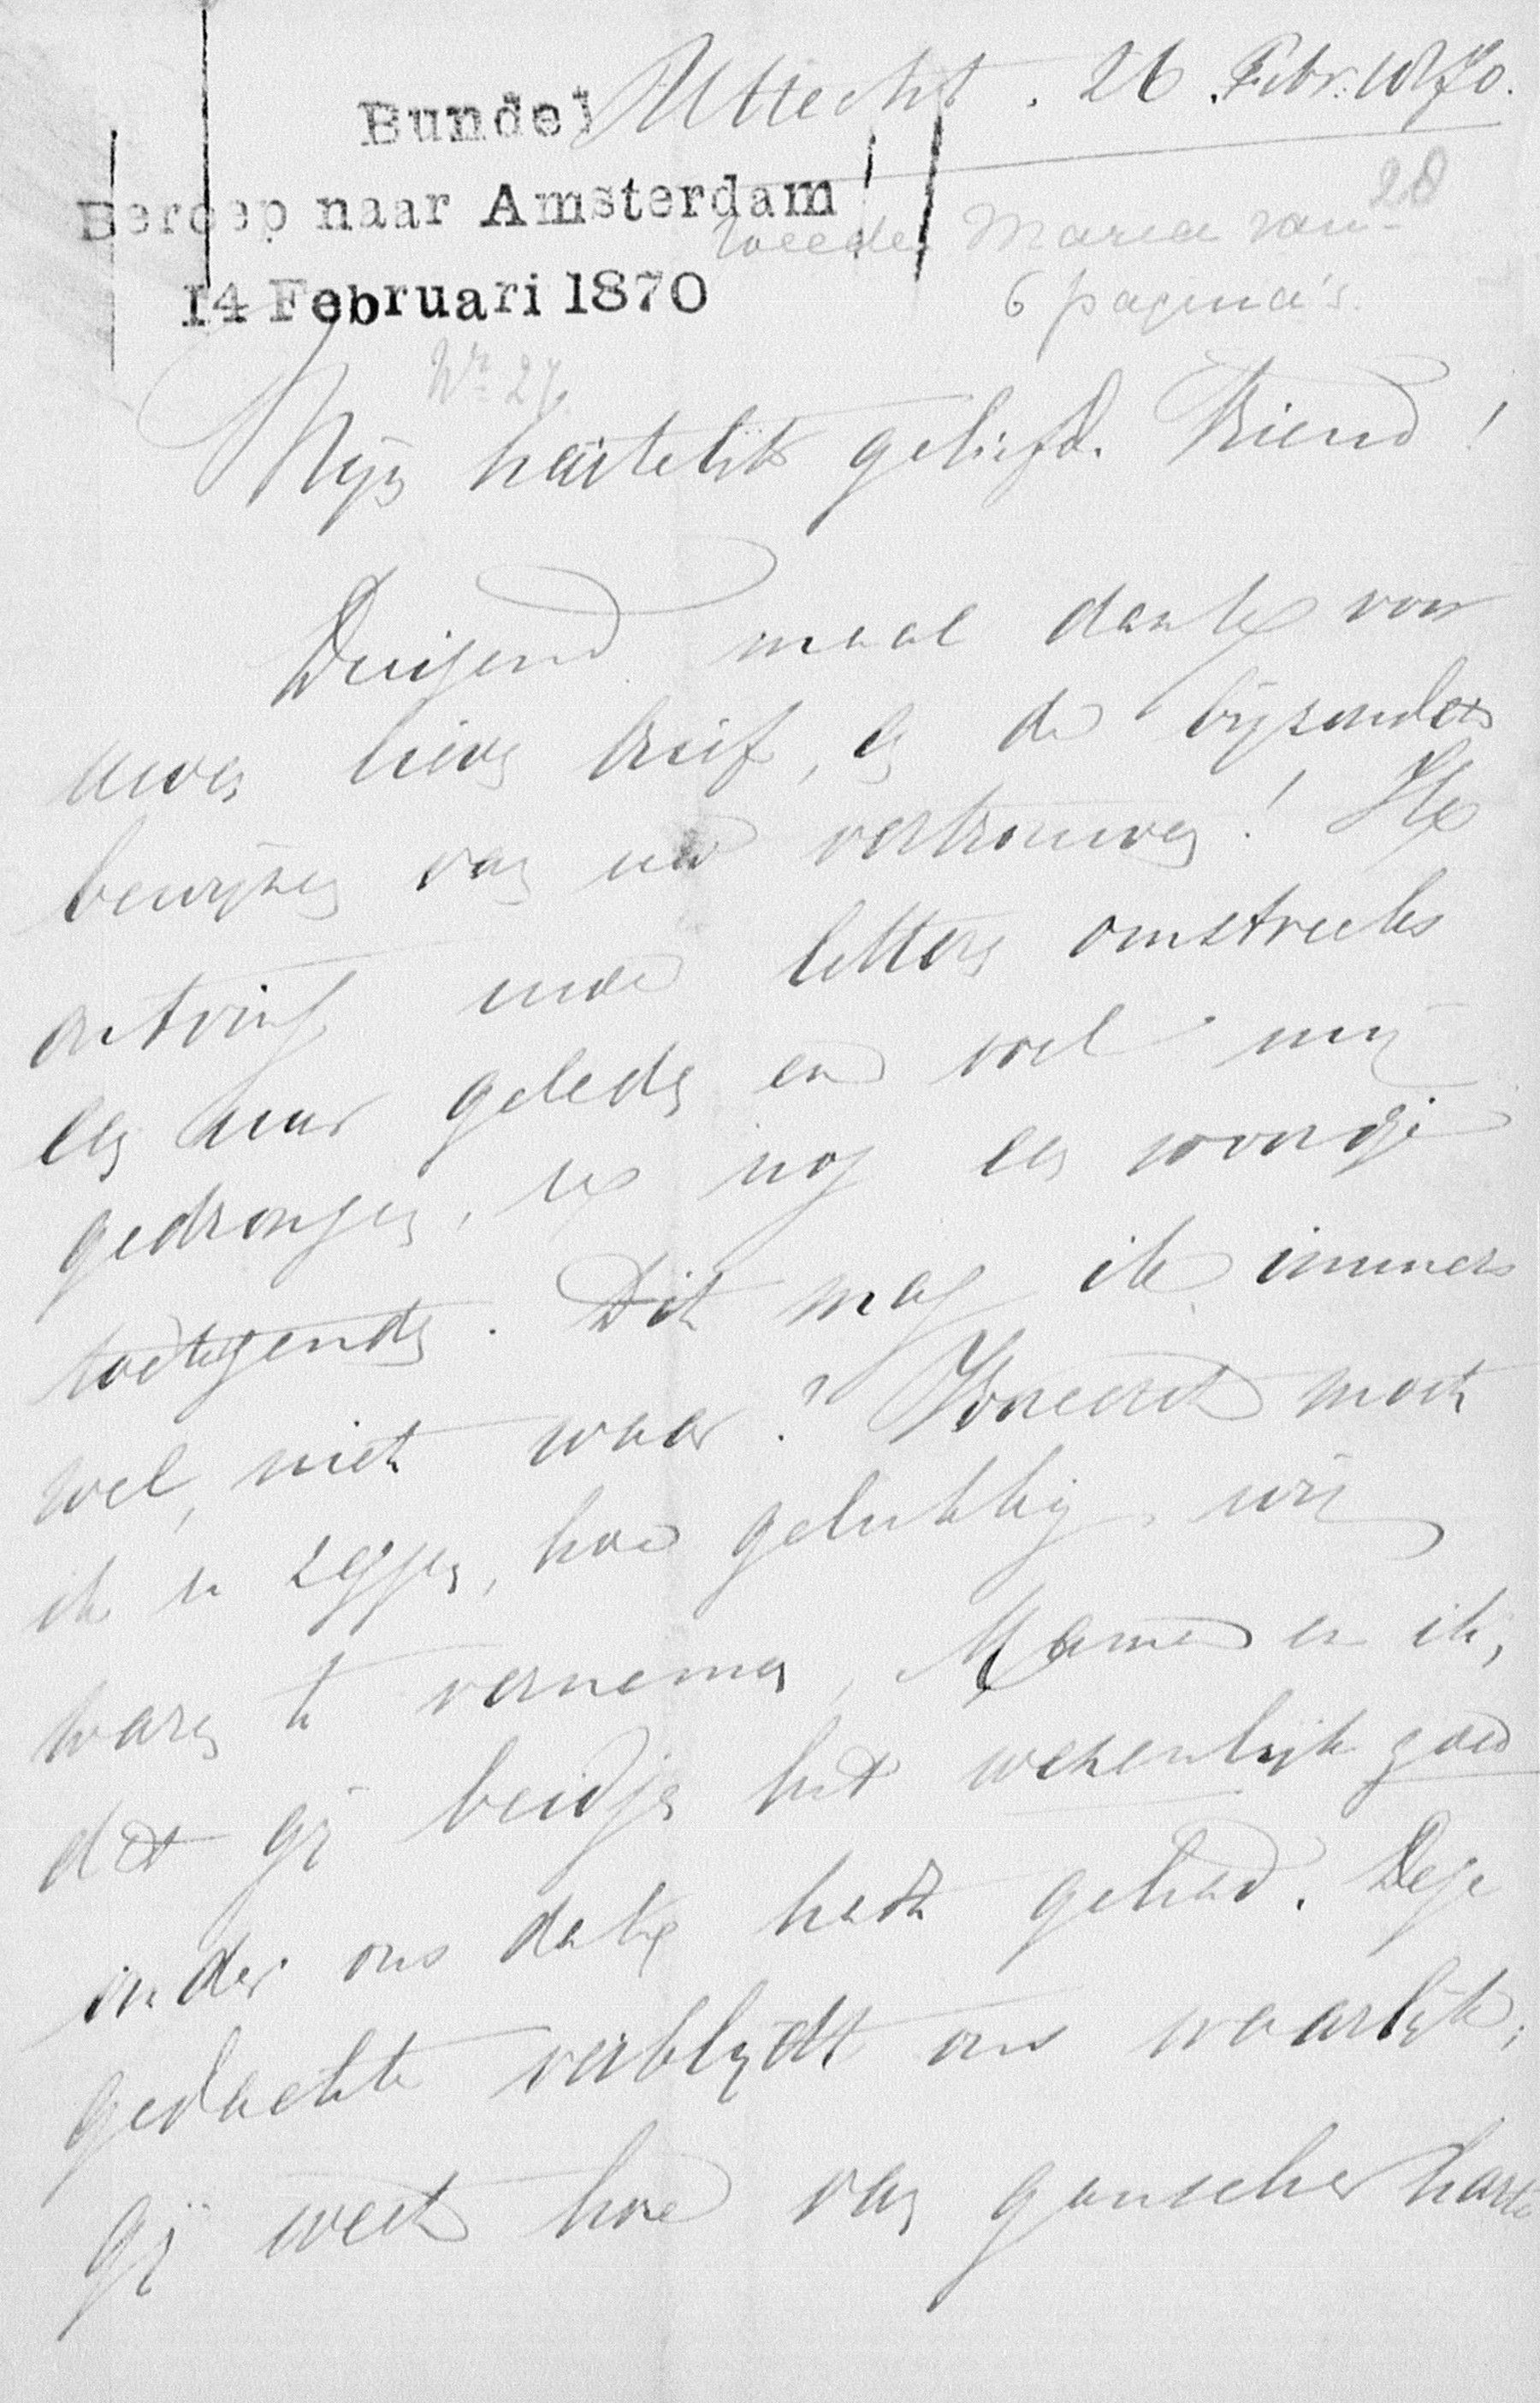 Utrecht. 26. Febr. 1870.
Bundel
Beroep naar Amsterdam
14 Februari 1870
28
tweede Maria van
6 pagina's.
Nr 27.
Mijn hartelijk geliefde Vriend!
Duizend maal dank voor
uwen lieven brief, en de bijzondere
bewijzen van uw vertrouwen! Ik
ontving uwe letteren omstreeks
een uur geleden en voel mij
gedrongen, u nog een woordje
toetezenden. Dit mag ik immers
wel, niet waar? Vooreerst moet
ik u zeggen, hoe gelukkig wij
waren te vernemen, Mama en ik,
dat gij beidjes het wezenlijk goed
onder ons dak hadt gehad. Deze
gedachte verblijdt ons waarlijk;
gij weet hoe van ganscher harte